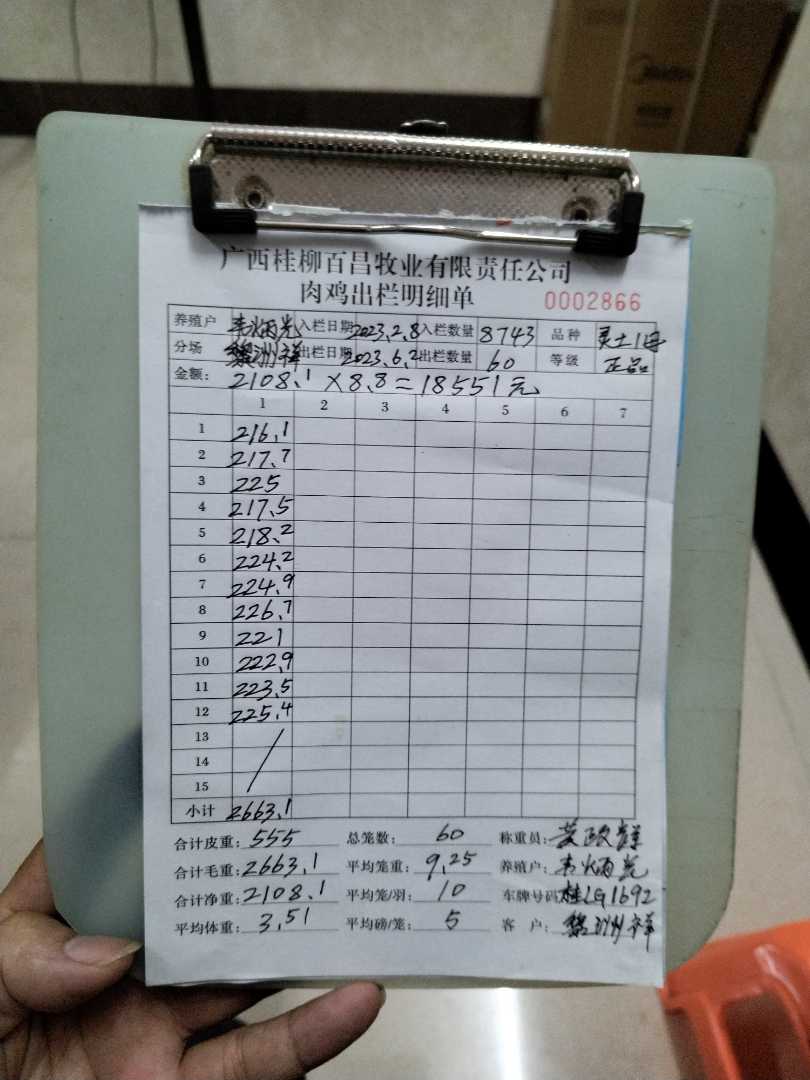 Midea
广西桂柳百昌牧业有限责任公司
肉鸡出栏明细单 0002866
养殖户 韦炳光 入栏日期 2023.2.8 入栏数量 8743 品种 灵土1号
分场 黎洲祥 出栏日期 2023.6.2 出栏数量 60 等级 正品
金额: 2108.1×8.8=18551元
1 2 3 4 5 6 7
1 216.1
2 217.7
3 225
4 217.5
5 218.2
6 224.2
7 224.9
8 226.7
9 221
10 222.9
11 223.5
12 225.4
13
14
15
小计 2663.1
合计皮重: 555 总笼数: 60 称重员:
合计毛重: 2663.1 平均笼重: 9.25 养殖户: 韦炳光
合计净重: 2108.1 平均笼/羽: 10 车牌号码: 桂LG1692
平均体重: 3.51 平均磅/笼: 5 客户: 黎洲祥